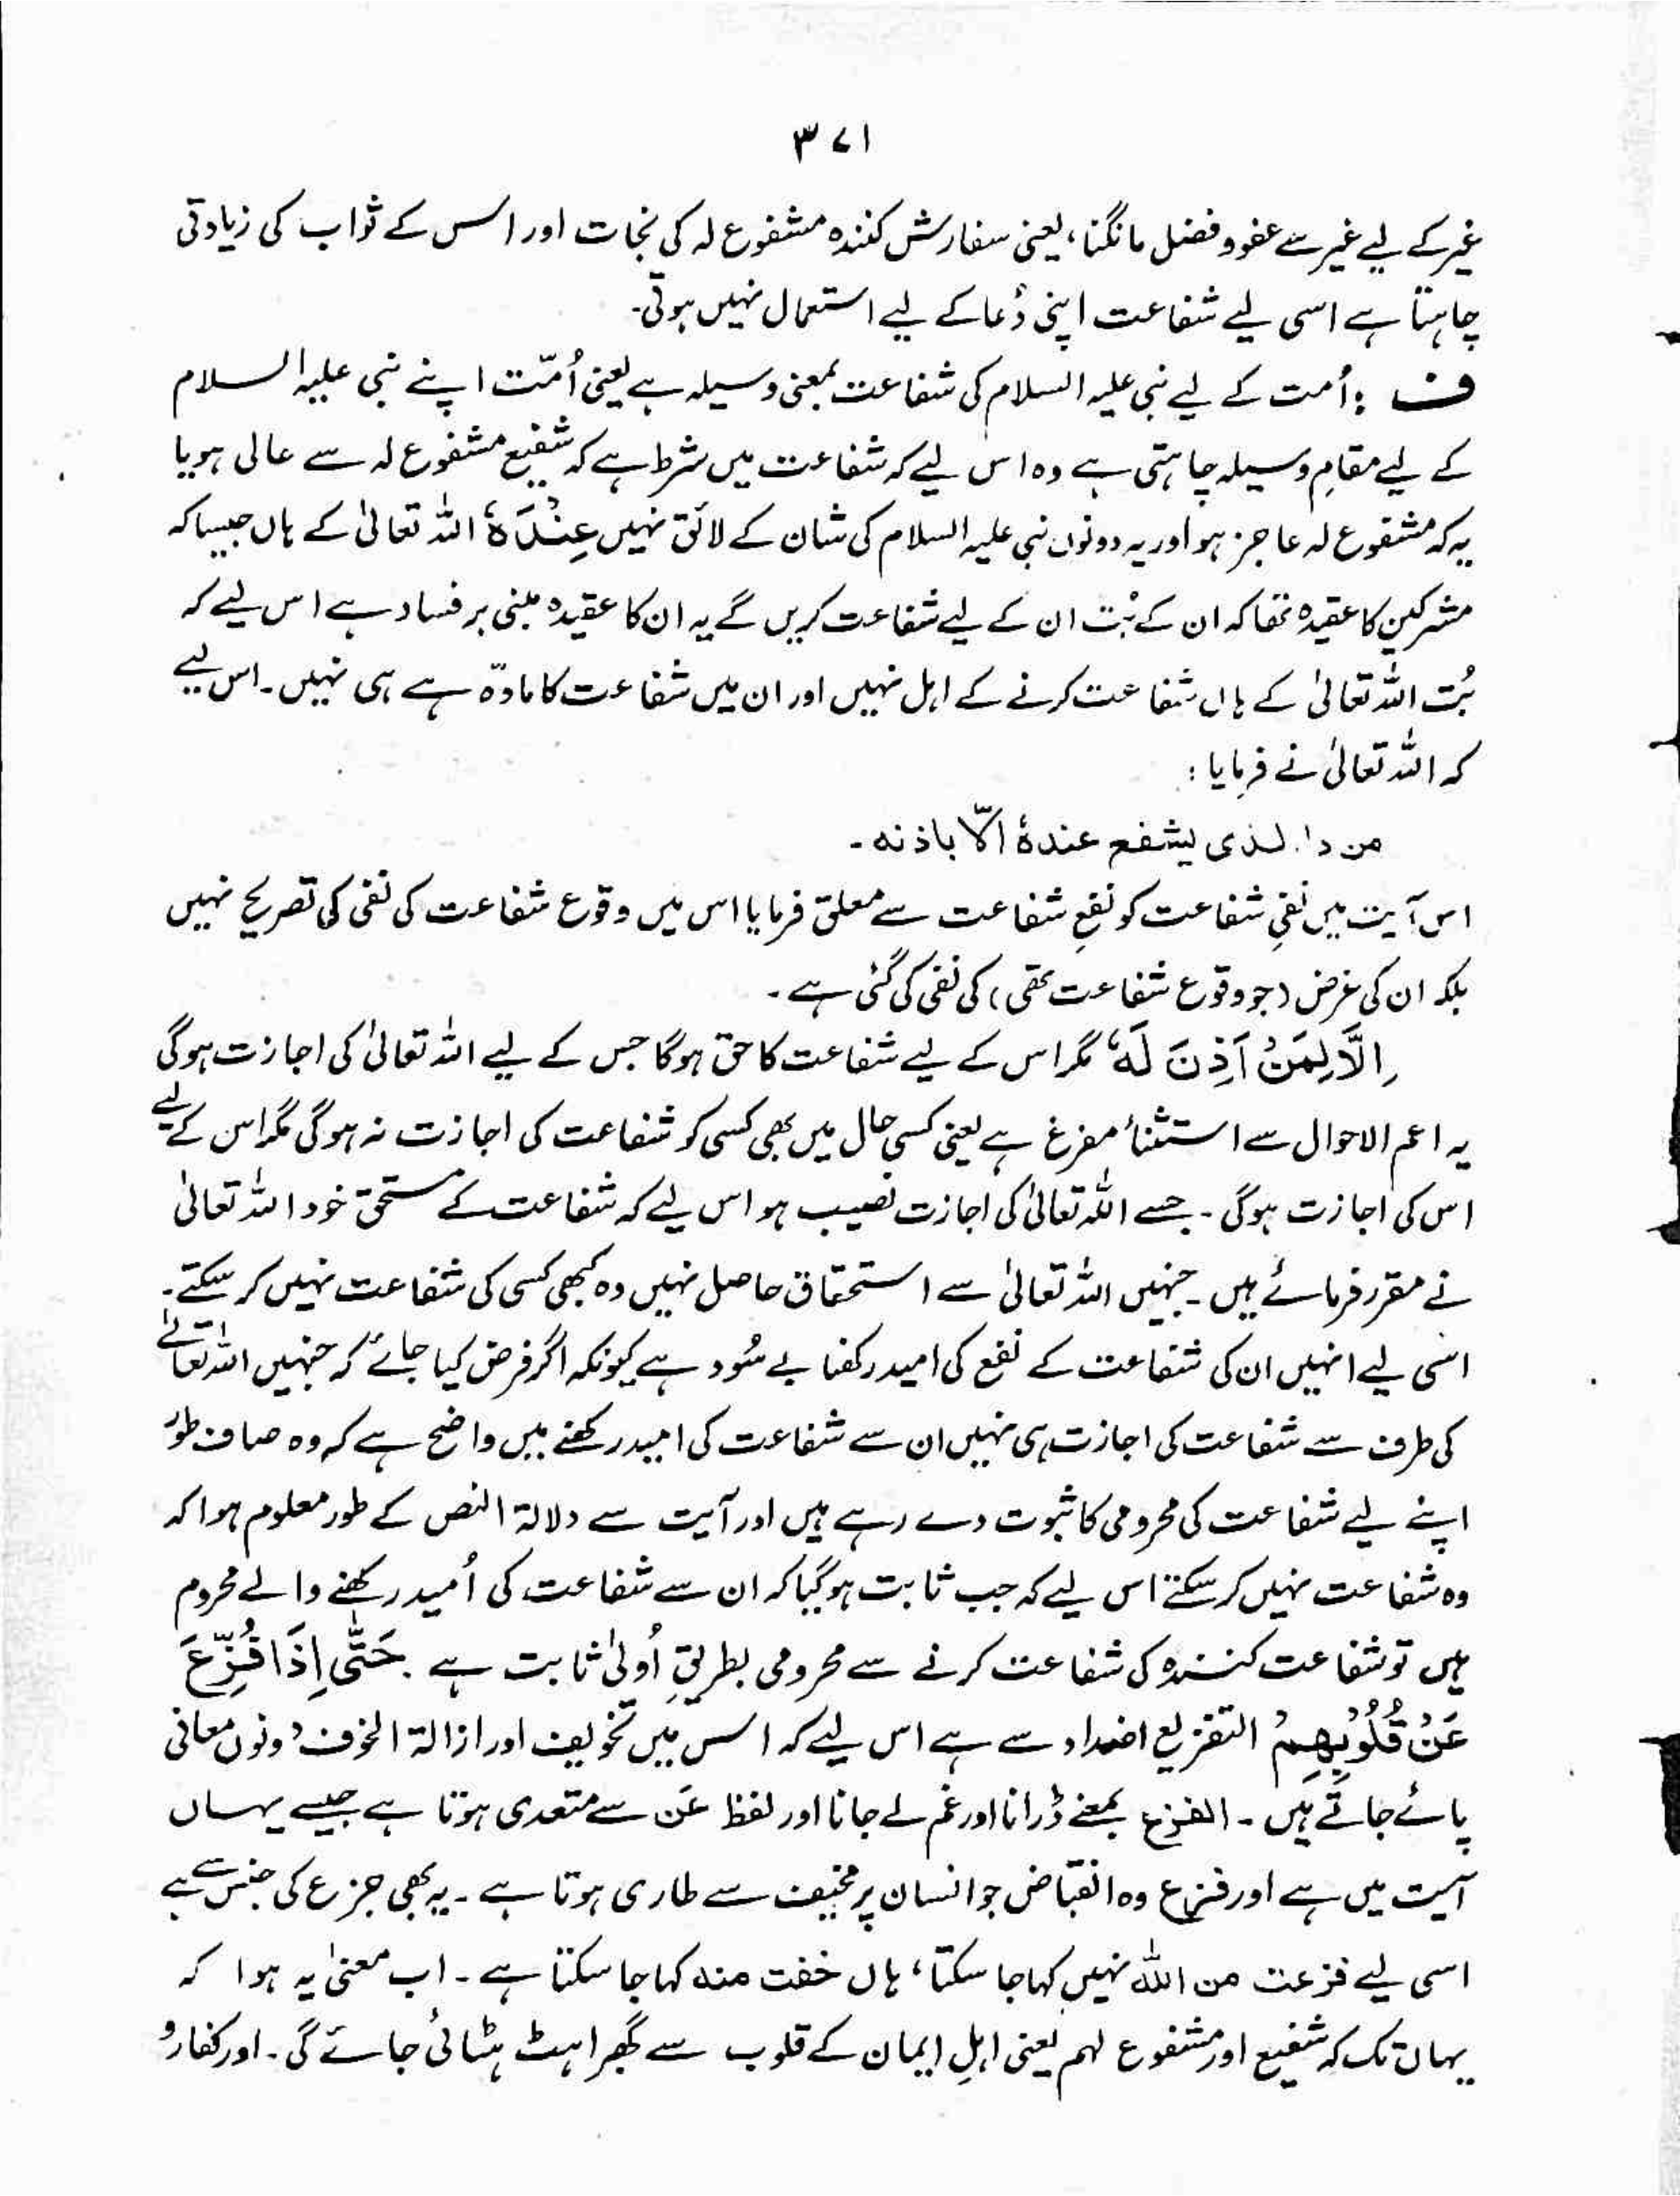 ۳۷۱
غیر کے لیے غیر سے عفو و فضل مانگنا، یعنی سفارش کنندہ مشفوع لہ کی نجات اور اس کے ثواب کی زیادتی
چاہتا ہے اسی لیے شفاعت اپنی دُعا کے لیے استعمال نہیں ہوتی۔
ف : اُمت کے لیے نبی علیہ السلام کی شفاعت بمعنی وسیلہ ہے یعنی اُمّت اپنے نبی علیہ السلام
کے لیے مقامِ وسیلہ چاہتی ہے وہ اس لیے کہ شفاعت میں شرط ہے کہ شفیع مشفوع لہ سے عالی ہو یا
یہ کہ مشفوع لہ عاجز ہو اور یہ دونوں نبی علیہ السلام کی شان کے لائق نہیں عِنْدَهٗ اللہ تعالیٰ کے ہاں جیسا کہ
مشرکین کا عقیدہ تھا کہ ان کے بُت ان کے لیے شفاعت کریں گے یہ ان کا عقیدہ مبنی بر فساد ہے اس لیے کہ
بُت اللہ تعالیٰ کے ہاں شفاعت کرنے کے اہل نہیں اور ان میں شفاعت کا مادّہ ہے ہی نہیں۔ اس لیے
کہ اللہ تعالیٰ نے فرمایا :
من ذا الذی یشفع عندہٗ الّا باذنہ ۔
اس آیت میں نفیِ شفاعت کو نفعِ شفاعت سے معلق فرمایا اس میں وقوع شفاعت کی نفی کی تصریح نہیں
بلکہ ان کی غرض (جو وقوع شفاعت تھی) کی نفی کی گئی ہے ۔
اِلَّا لِمَنْ اَذِنَ لَهٗ مگر اس کے لیے شفاعت کا حق ہوگا جس کے لیے اللہ تعالیٰ کی اجازت ہوگی
یہ اعم الاحوال سے استثناء مفرغ ہے یعنی کسی حال میں بھی کسی کو شفاعت کی اجازت نہ ہوگی مگر اس کے لیے
اس کی اجازت ہوگی ۔ جسے اللہ تعالیٰ کی اجازت نصیب ہو اس لیے کہ شفاعت کے مستحق خود اللہ تعالیٰ
نے مقرر فرمائے ہیں ۔ جنہیں اللہ تعالیٰ سے استحقاق حاصل نہیں وہ کبھی کسی کی شفاعت نہیں کر سکتے۔
اسی لیے انہیں ان کی شفاعت کے نفع کی امید رکھنا بے سُود ہے کیونکہ اگر فرض کیا جائے کہ جنہیں اللہ تعالےٰ
کی طرف سے شفاعت کی اجازت ہی نہیں ان سے شفاعت کی امید رکھنے میں واضح ہے کہ وہ صاف طور
اپنے لیے شفاعت کی محرومی کا ثبوت دے رہے ہیں اور آیت سے دلالۃ النص کے طور معلوم ہوا کہ
وہ شفاعت نہیں کر سکتے اس لیے کہ جب ثابت ہو گیا کہ ان سے شفاعت کی اُمید رکھنے والے محروم
ہیں تو شفاعت کنندہ کی شفاعت کرنے سے محرومی بطریقِ اُولیٰ ثابت ہے ۔ حَتّٰی اِذَا فُزِّعَ
عَنْ قُلُوْبِهِمْ التفزیع اضداد سے ہے اس لیے کہ اس میں تخویف اور ازالۃ الخوف دونوں معانی
پائے جاتے ہیں ۔ الفزع بمعنے ڈرانا اور غم لے جانا اور لفظ عَن سے متعدی ہوتا ہے جیسے یہاں
آیت میں ہے اور فزع وہ انقباض جو انسان پر مخیف سے طاری ہوتا ہے ۔ یہ بھی جزع کی جنس سے ہے
اسی لیے فزعت من اللہ نہیں کہا جا سکتا، ہاں خفت منہ کہا جا سکتا ہے ۔ اب معنیٰ یہ ہوا کہ
یہاں تک کہ شفیع اور مشفوع لہم یعنی اہلِ ایمان کے قلوب سے گھبراہٹ ہٹائی جائے گی ۔ اور کفار و